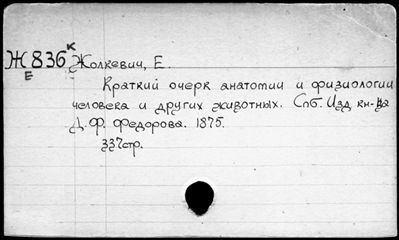 Ж836 К Жолкевич, Е.
Е
Краткий очерк анатомии и физиологии
человека и других животных. Спб. Изд. кн-ва
Д.Ф. Федорова. 1875.
337стр.